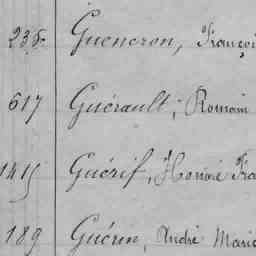 235 Guencron, Françoi
617 Guérault, Romain
1415 Guérif, Honoré Fra
189 Guérin, André Mari